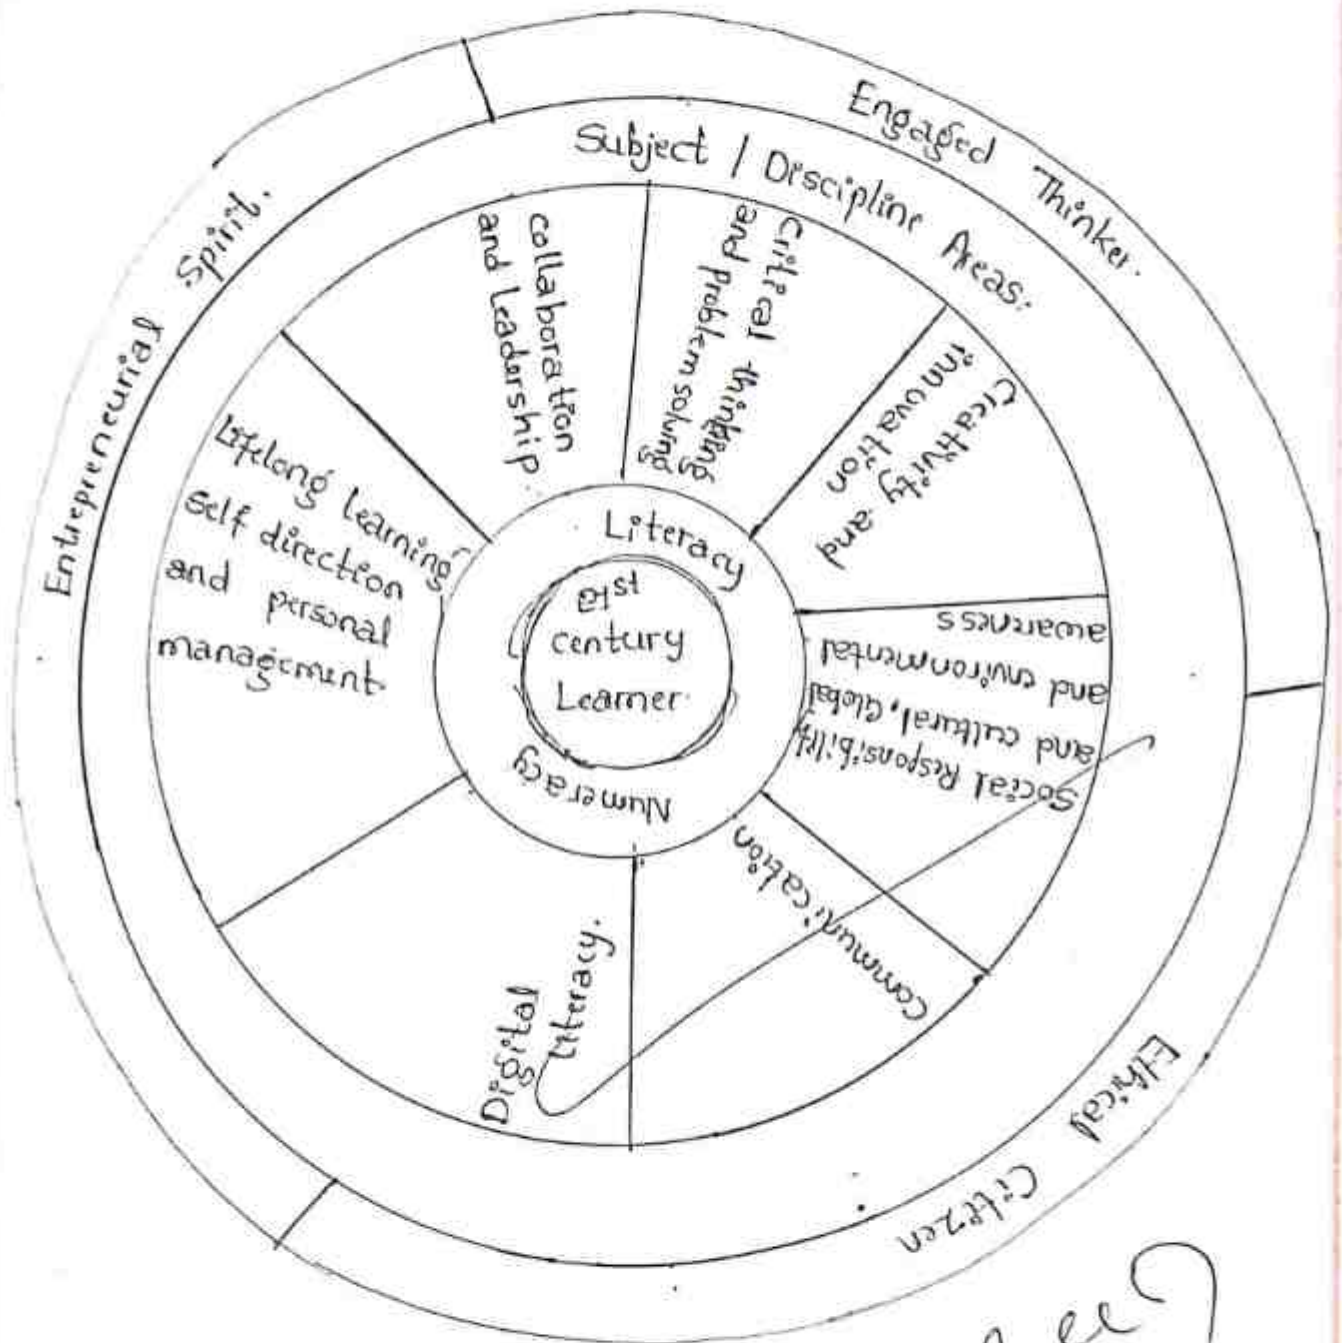 Engaged Thinker.
Entrepreneurial Spirit.
Ethical Citizen
Subject / Discipline Areas.
Collaboration
and Leadership
Critical thinking
and problem solving
Creativity and
innovation
Social Responsibility
and cultural, Global
and environmental
awareness
Communication
Digital
literacy.
Lifelong learning,
Self direction
and personal
management.
Literacy
21st
century
Learner.
Numeracy